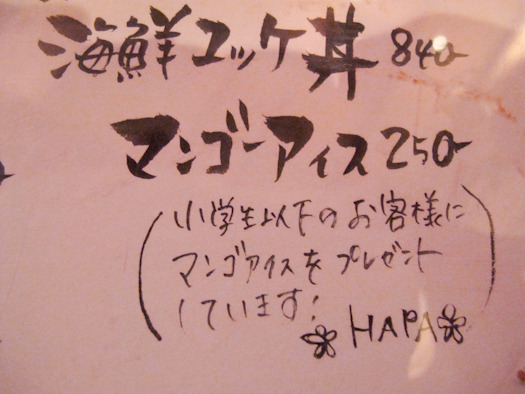 海鮮ユッケ丼 840-
マンゴーアイス 250-
(小学生以下のお客様に
マンゴアイスをプレゼント
しています!)
HAPA